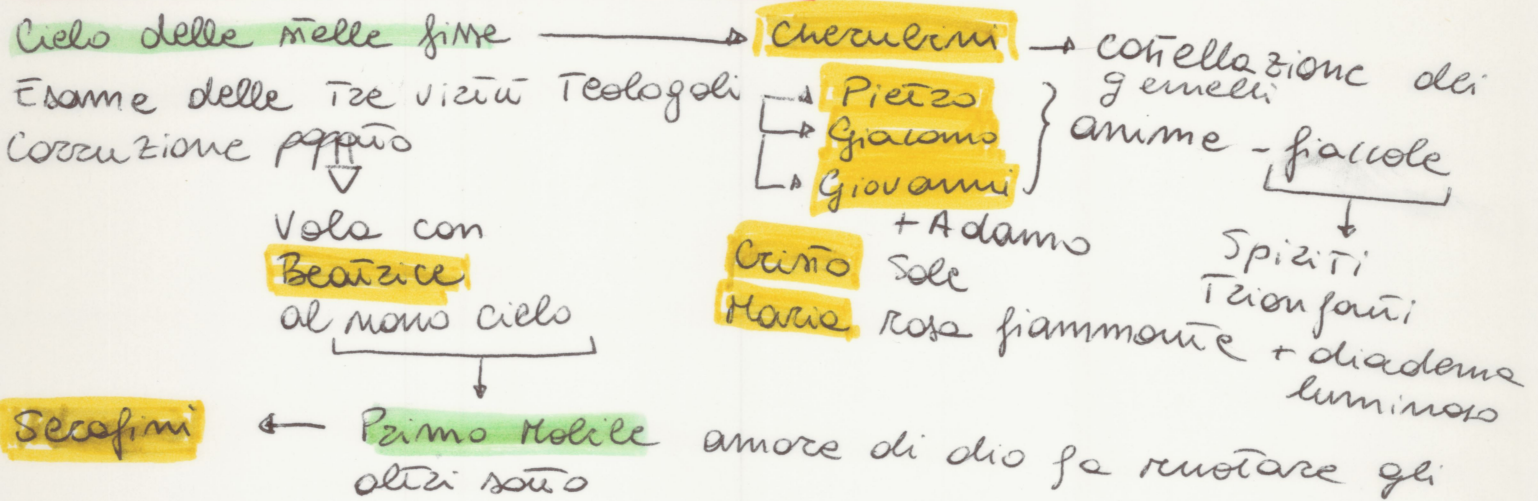 Cielo delle stelle fisse → Cherubini → costellazione dei gemelli
Esame delle Tre virtù Teologali
Corruzione papato
Pietro
Giacomo
Giovanni
+ Adamo
anime - fiaccole
Spiriti
Trionfanti
Vola con
Beatrice
al nono cielo
Cristo Sole
Maria rosa fiammante + diadema
luminoso
Serafini ← Primo Mobile amore di dio fa ruotare gli
altri sotto